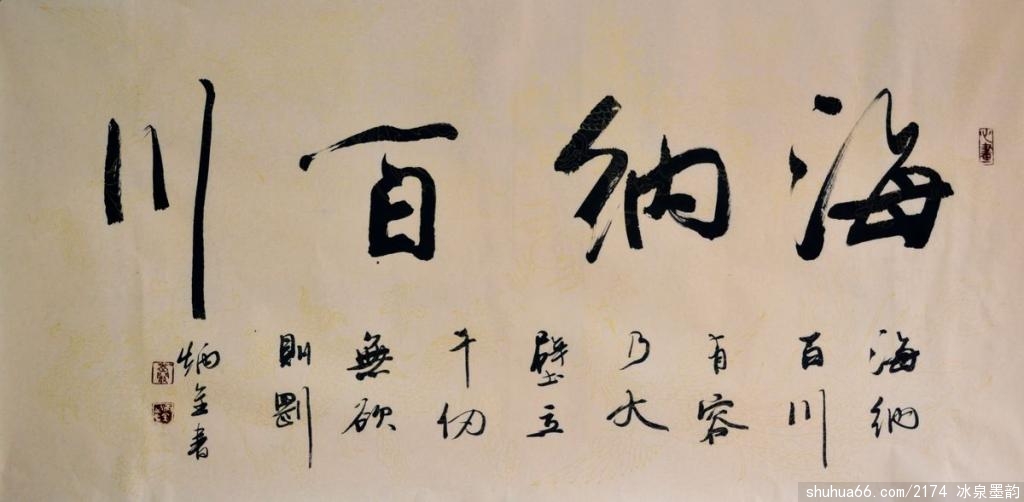 海納百川
海納
百川
有容
乃大
壁立
千仞
無欲
則剛
炳全書
心畫
shuhua66.com/2174 冰泉墨韵